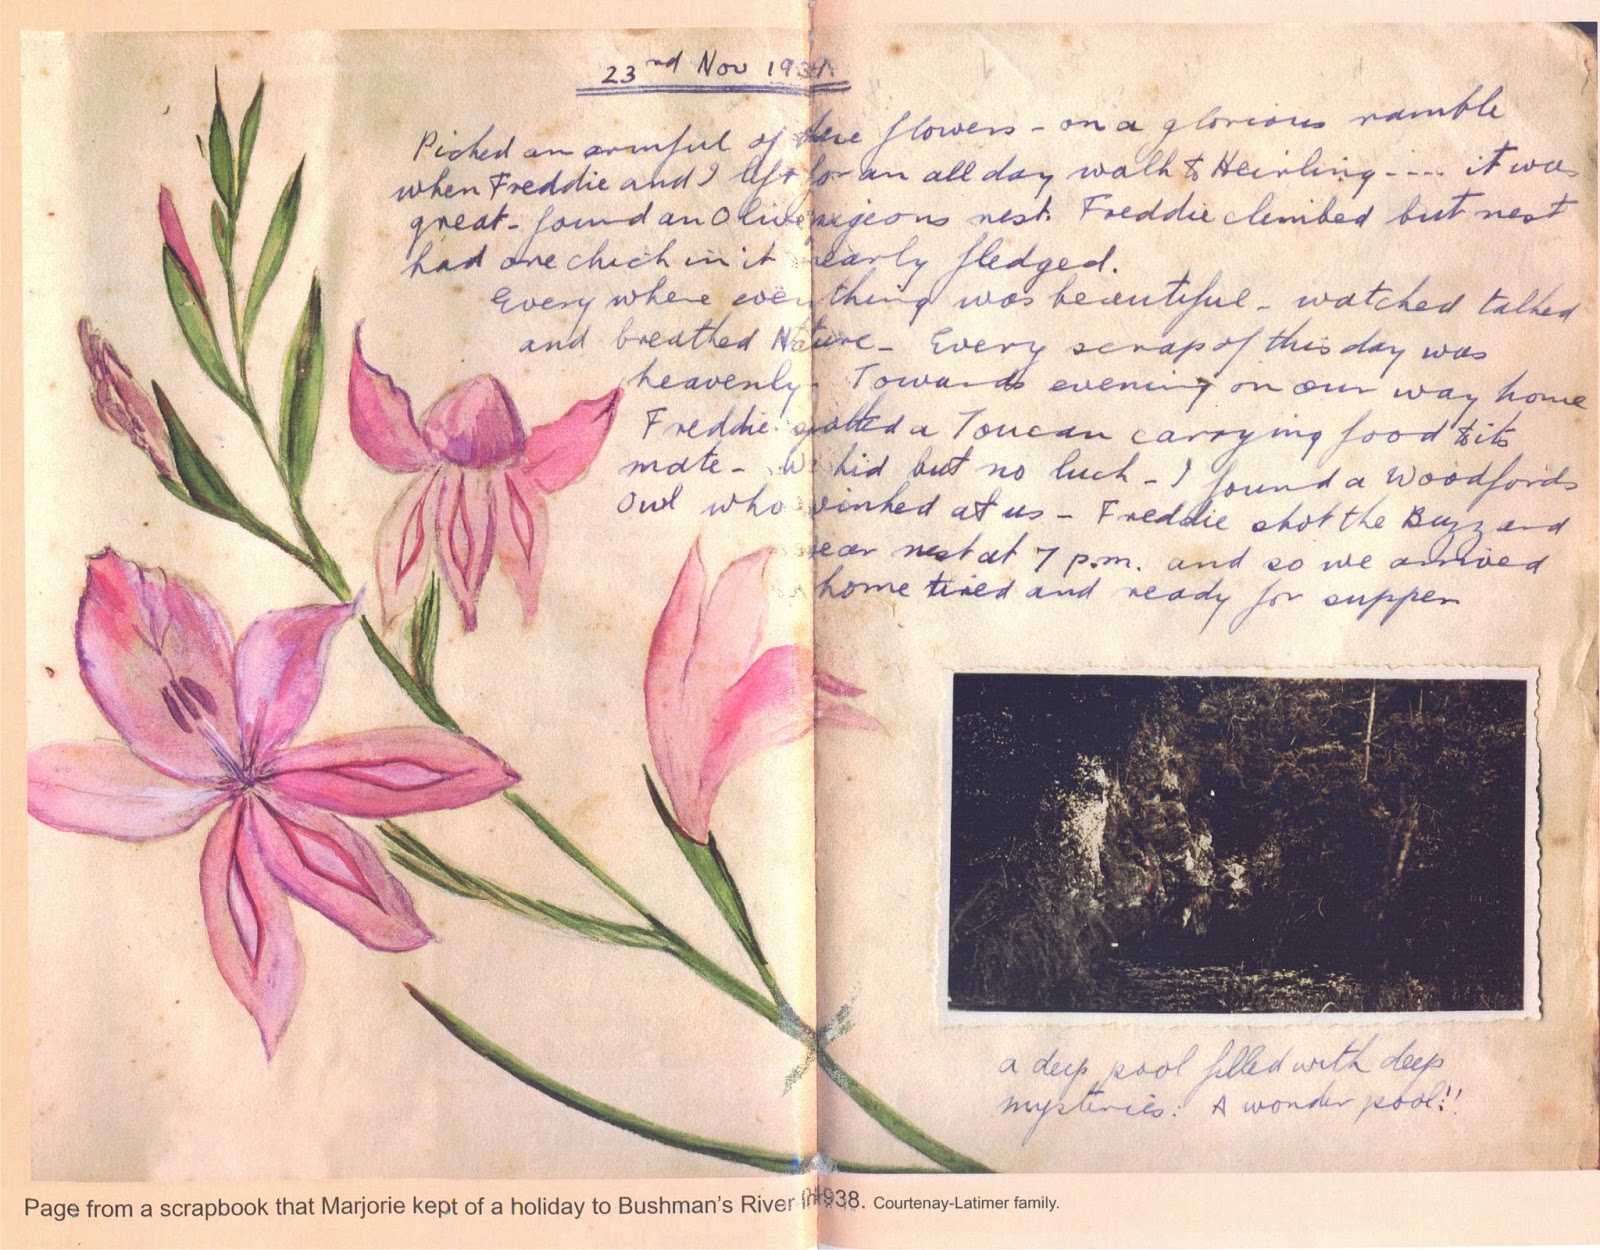 23nd Nov 193
Picked an armful of these flowers - on a glorious ramble
when Freddie and I left for an all day walk to Heirling ---- it was
great - found an Olive pigeons nest. Freddie climbed but nest
had one chick in it nearly fledged.
Every where everything was beautiful - watched talked
and breathed Nature - Every scrap of this day was
heavenly - Towards evening on our way home
Freddie spotted a Toucan carrying food to its
mate - We hid but no luck - I found a Woodfords
Owl who winked at us - Freddie shot the Buzzard
near nest at 7 p.m. and so we arrived
home tired and ready for supper
a deep pool filled with deep
mysteries: A wonder pool!!
Page from a scrapbook that Marjorie kept of a holiday to Bushman's River in 1938. Courtenay-Latimer family.